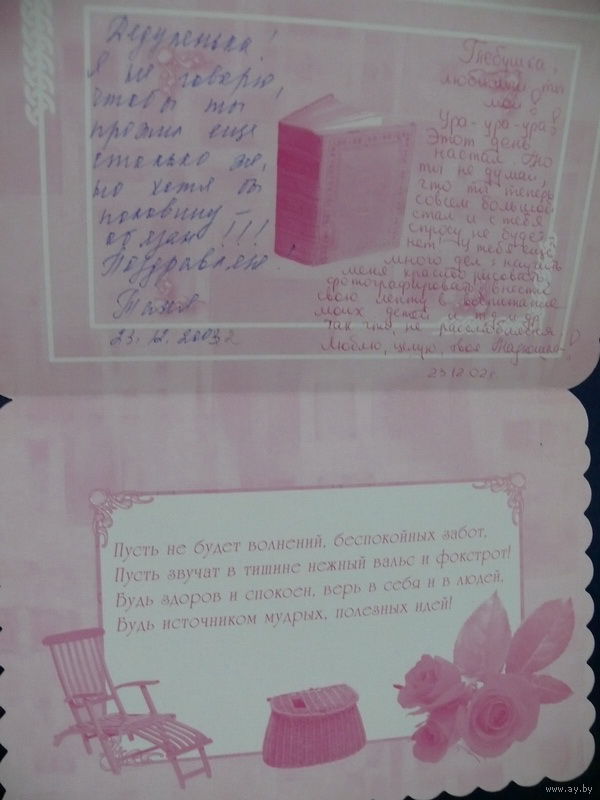 Дедуленька!
Я не говорю,
чтобы ты
прожил еще
столько же,
но хотя бы
половину –
обязан!!!
Поздравляю
Таня
23.12.2002
любимый ты
мой!
Ура-ура-ура!
Этот день
настал. Но
ты не думай,
что ты теперь
совсем большой
стал и с тебя
спросу не будет?
нет! У тебя ещё
много дел: научить
меня красиво рисовать,
фотографировать, внести
свою лепту в воспитание
моих детей и т.д. и др.
Так что, не расслабляйся
Люблю, целую, твоя
23.12.02г.
Пусть не будет волнений, беспокойных забот,
Пусть звучат в тишине нежный вальс и фокстрот!
Будь здоров и спокоен, верь в себя и в людей,
Будь источником мудрых, полезных идей!
www.ay.by